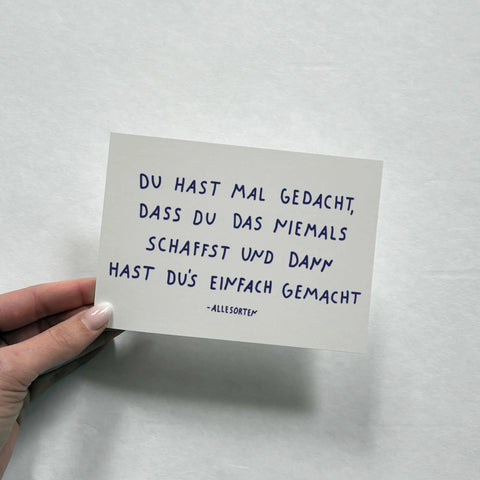 DU HAST MAL GEDACHT,
DASS DU DAS NIEMALS
SCHAFFST UND DANN
HAST DU'S EINFACH GEMACHT
-ALLESORTEN